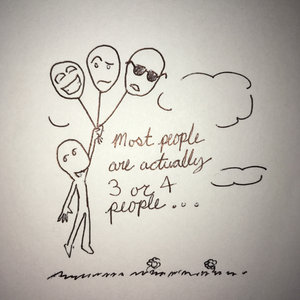 Most people
are actually
3 or 4
people...